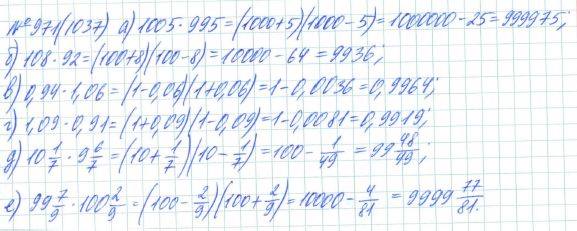 №971(1037) а) 1005·995=(1000+5)(1000-5)=1000000-25=999975;
б) 108·92=(100+8)(100-8)=10000-64=9936;
в) 0,94·1,06=(1-0,06)(1+0,06)=1-0,0036=0,9964;
г) 1,09·0,91=(1+0,09)(1-0,09)=1-0,0081=0,9919;
д) 10 1/7 · 9 6/7 = (10+1/7)(10-1/7)=100-1/49=99 48/49;
е) 99 7/9 · 100 2/9 = (100-2/9)(100+2/9)=10000-4/81=9999 77/81.